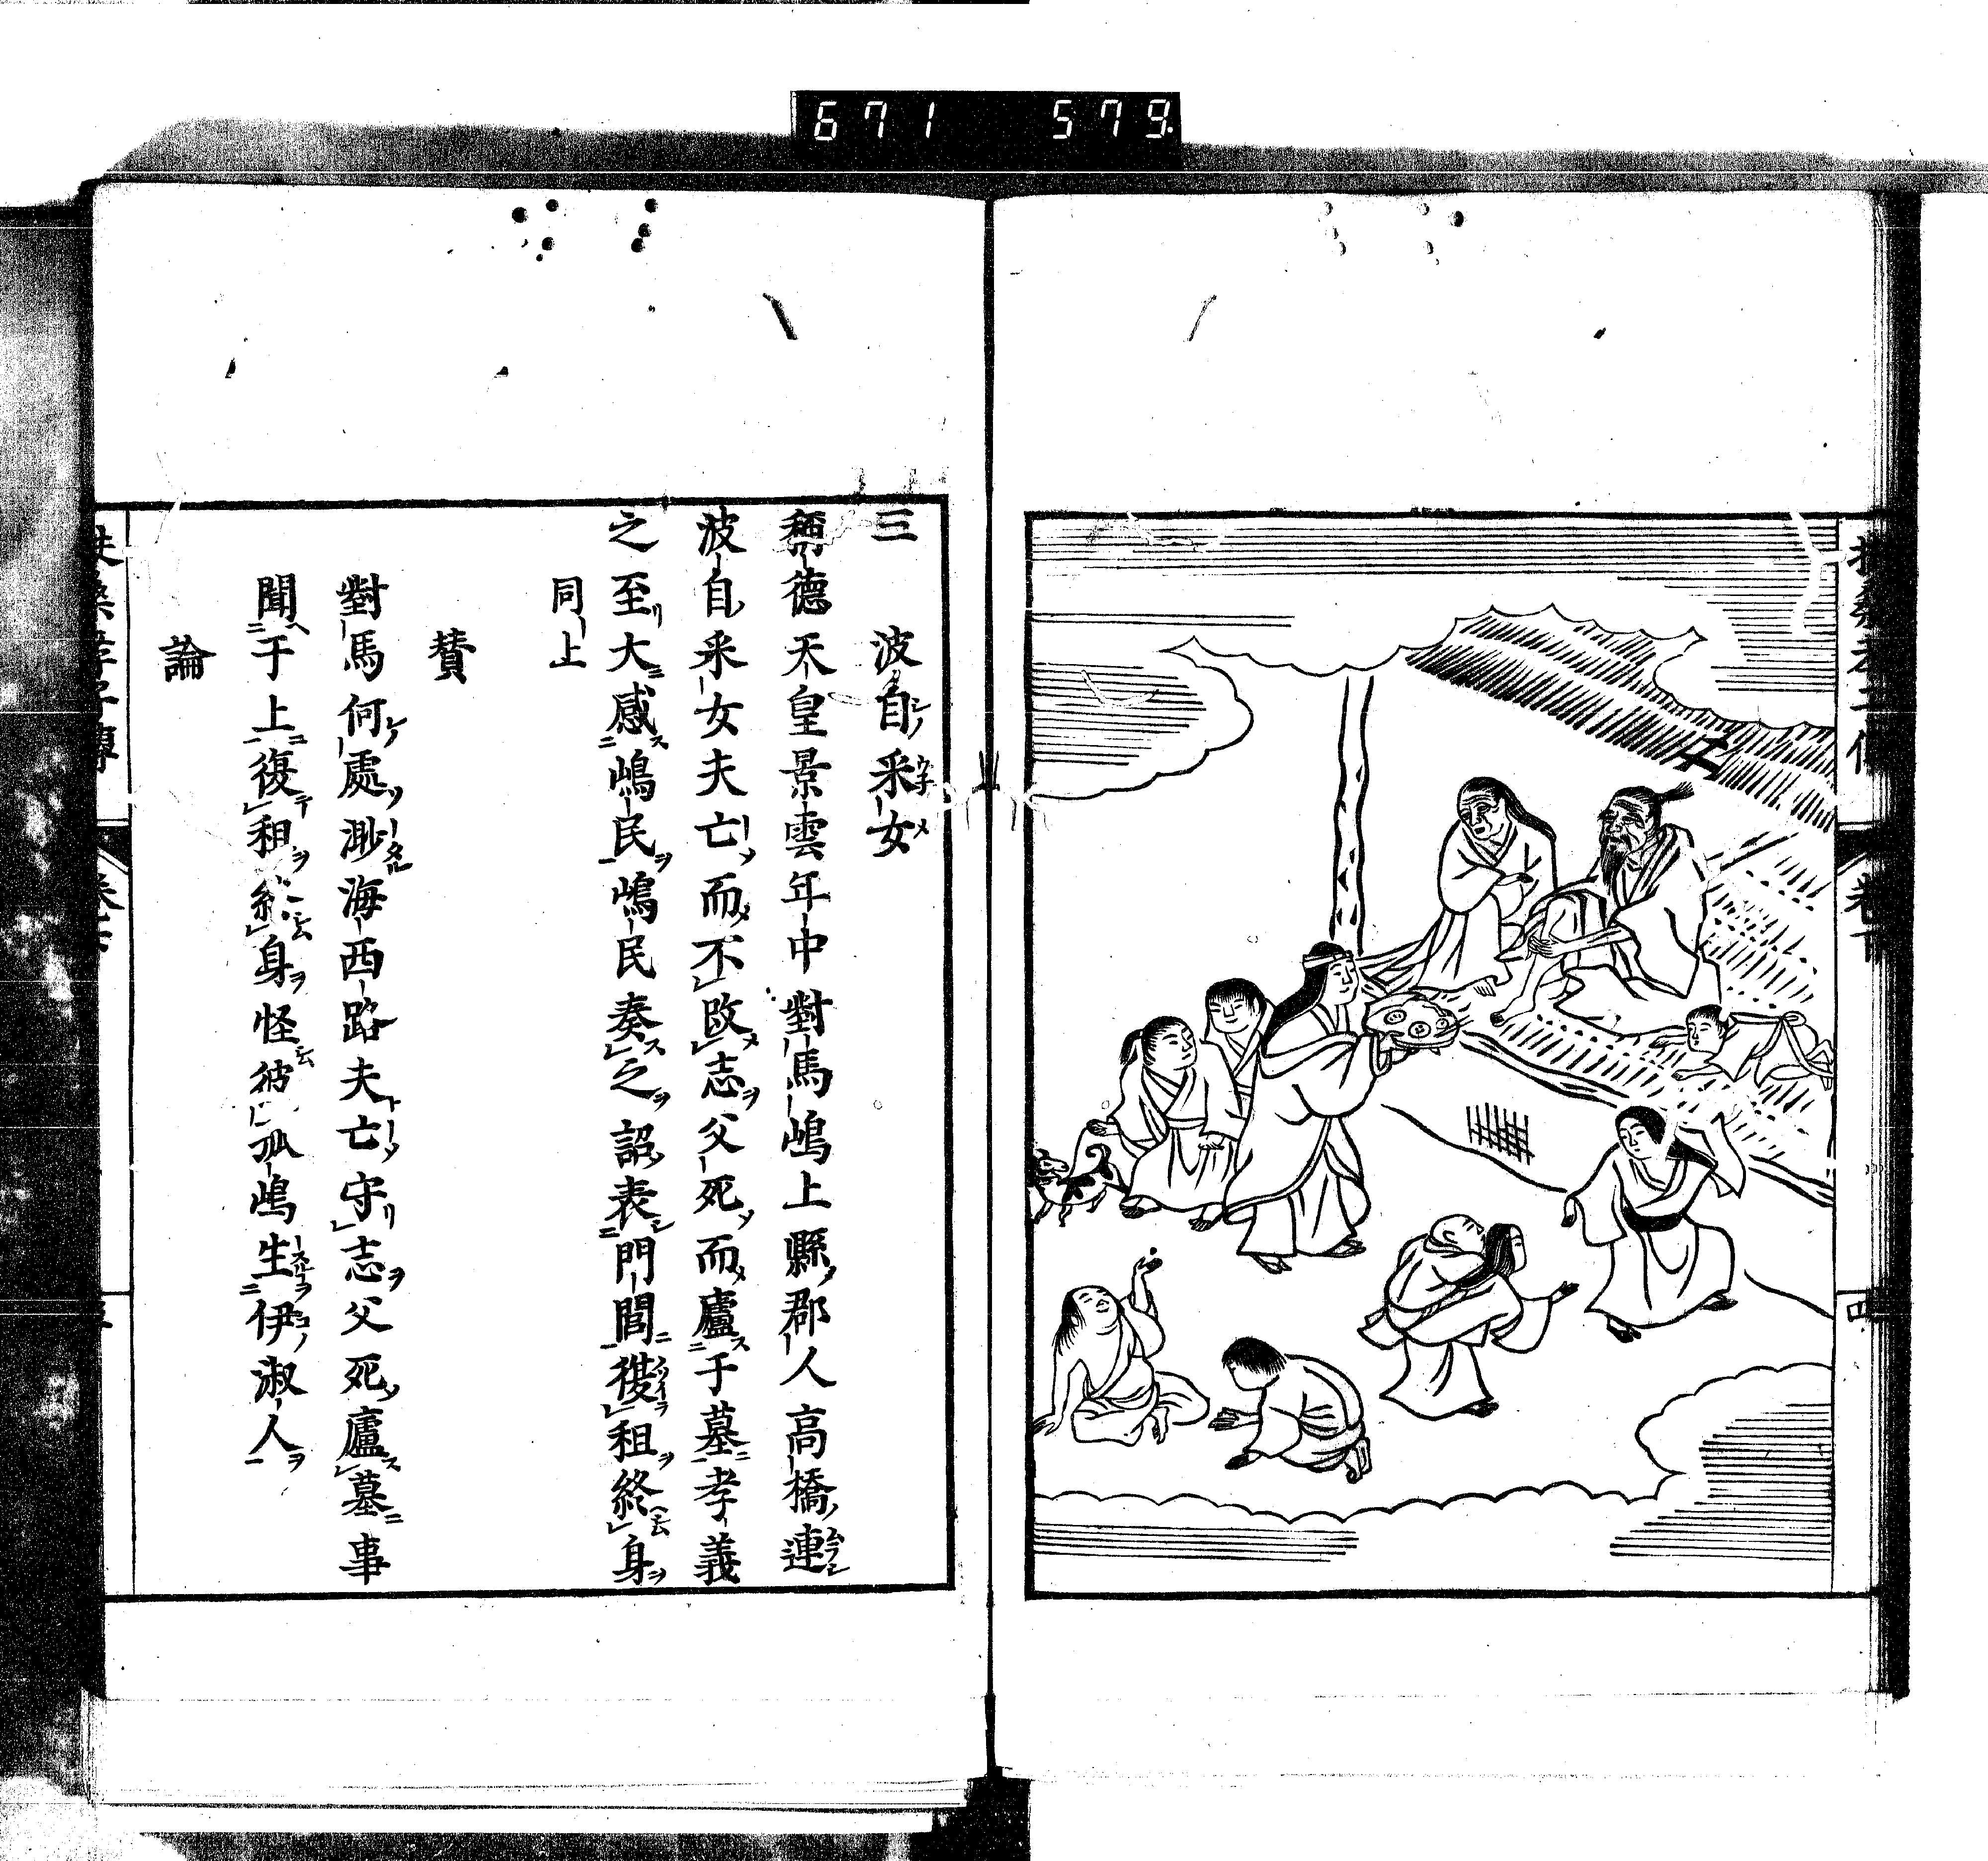 671 579
三 波自采女
稱德天皇景雲年中對馬嶋上縣郡人高橋連
波自采女夫亡而不改志父死而廬于墓孝義
之至大感嶋民嶋民奏之詔表門閭復租終身
同上
贊
對馬何處渺海西路夫亡守志父死廬墓事
聞于上復租終身怪彼孤嶋生伊淑人
論